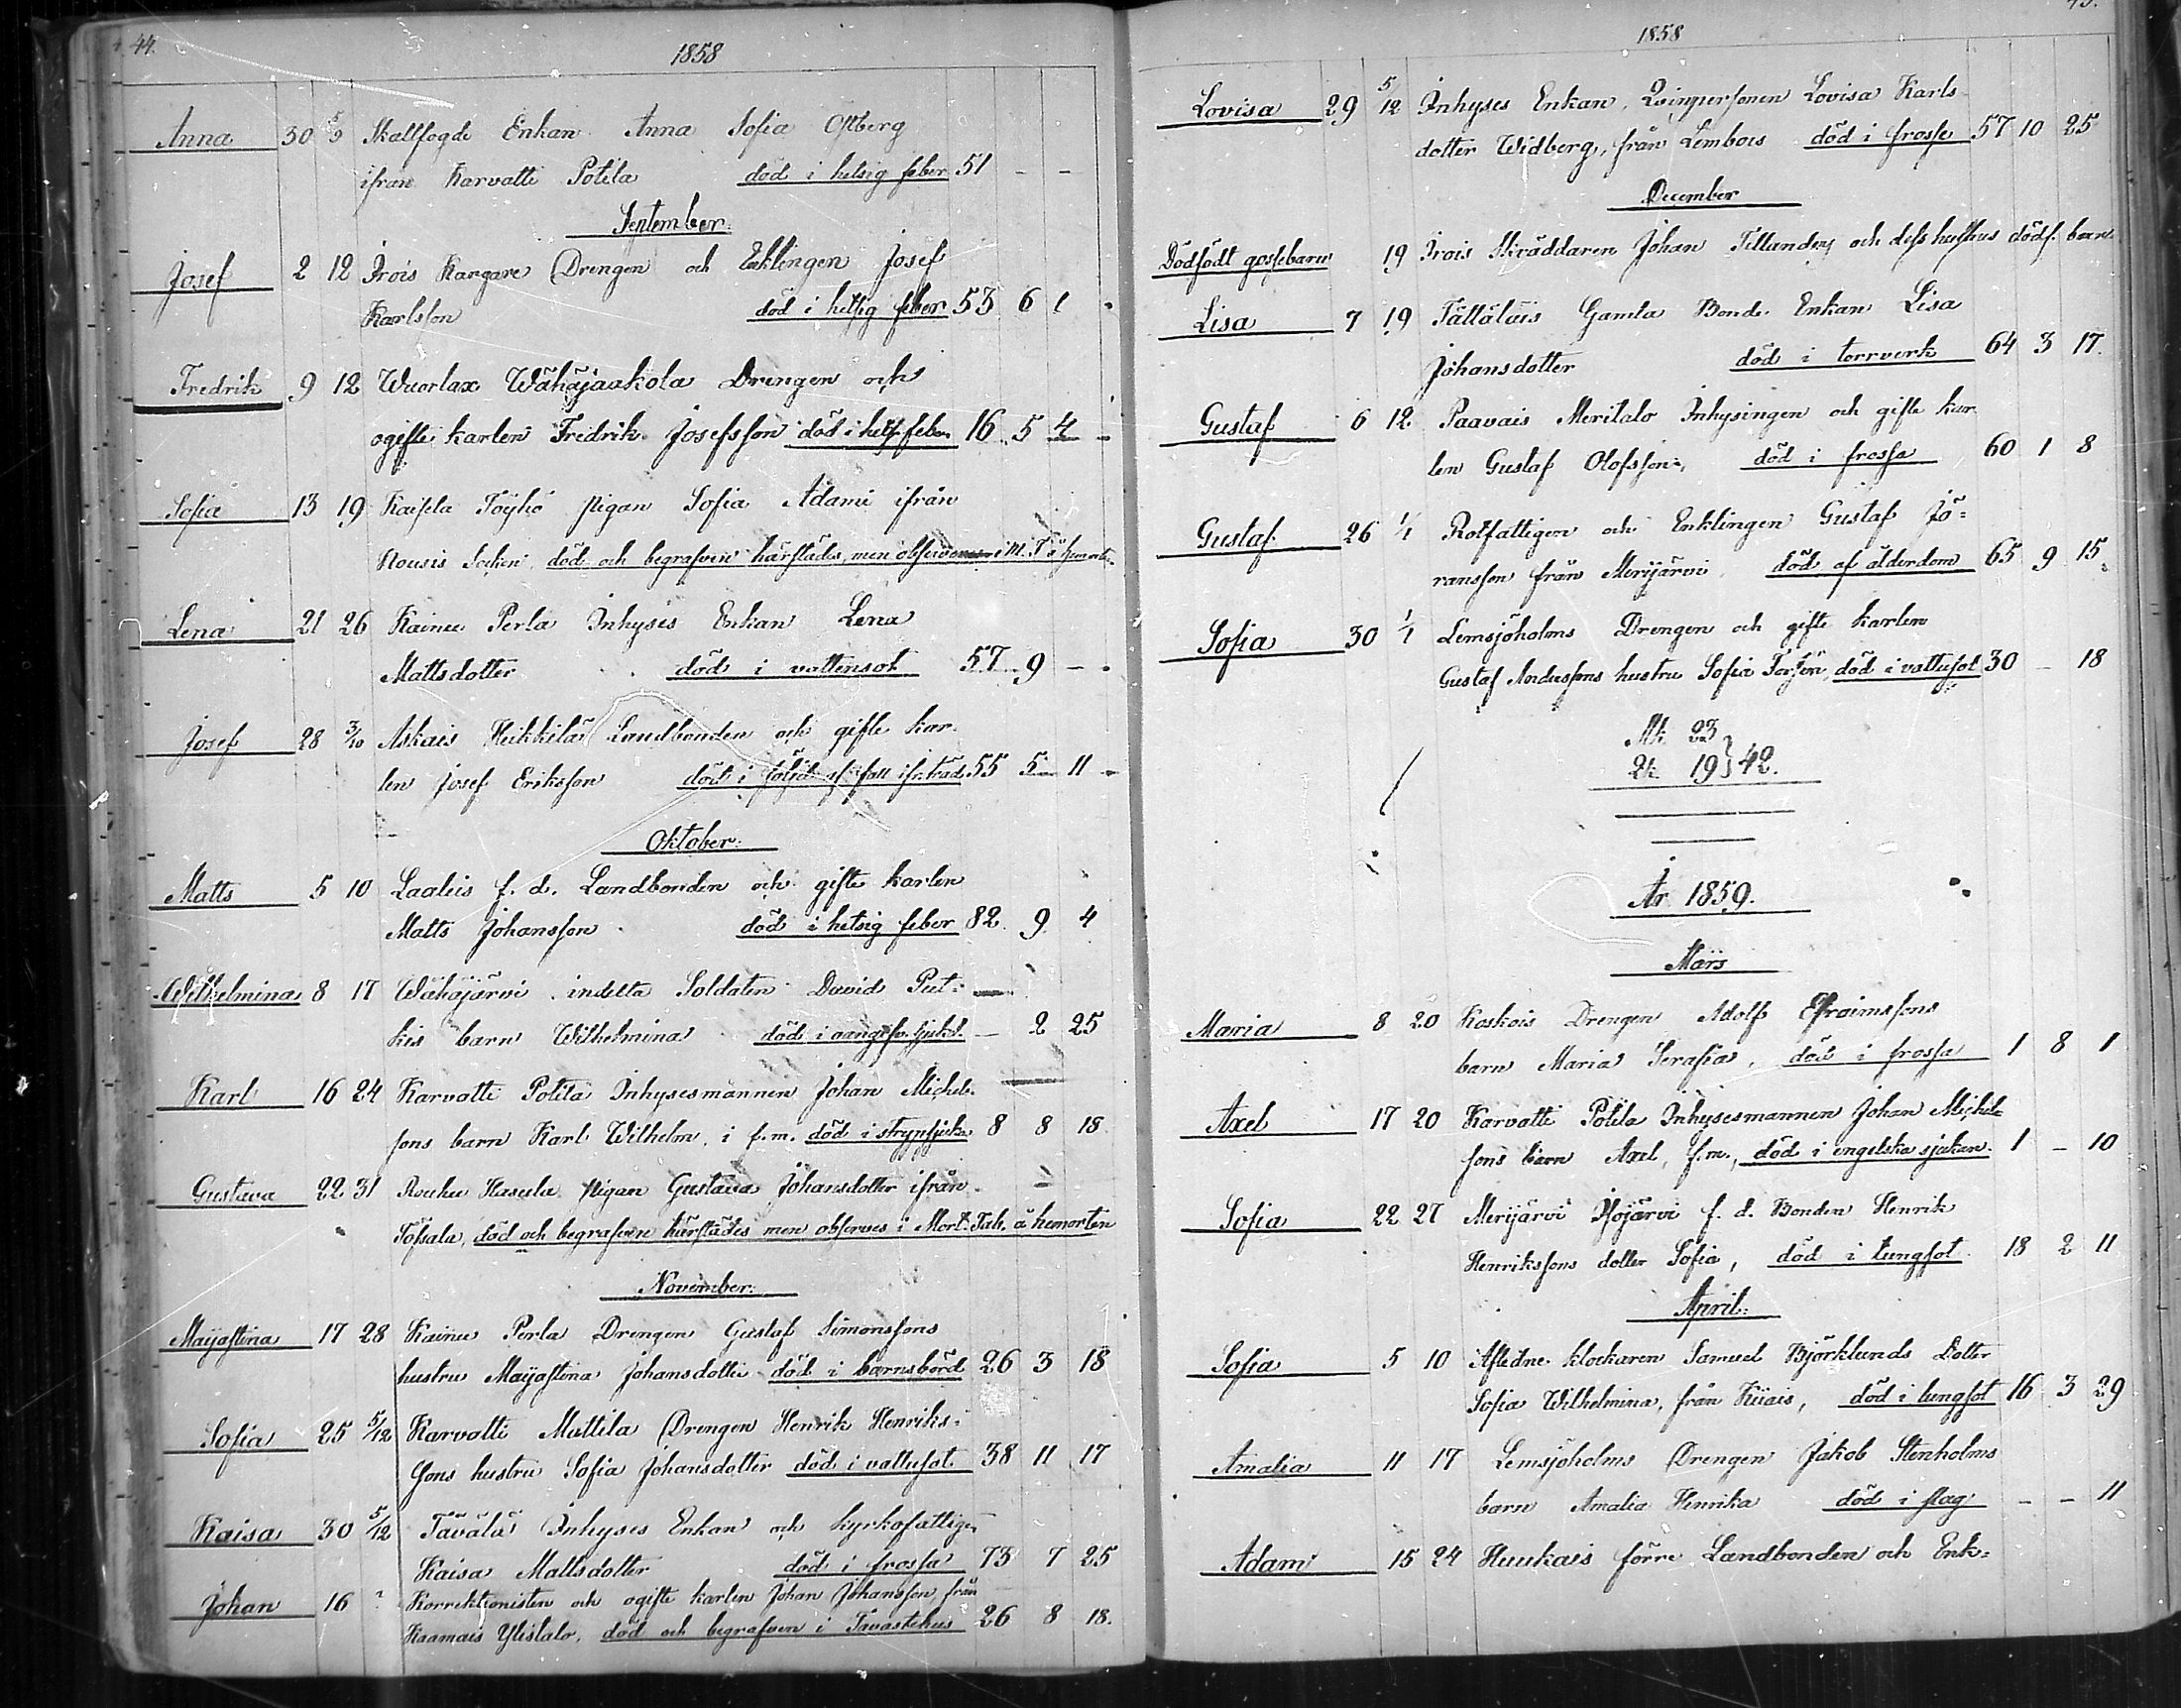 44.
1858
Anna 30 5/9 Skallfogde Enkan Anna Sofia Ostberg
ifran Karvatti Potila död i hetsig feber 51 - -
September.
Josef 2 12 Irois Kangare Drengen och Enklingen Josef
Karlsson död i hetsig feber 53 6 1
Fredrik 9 12 Wuorlax Wähäjaakola Drengen och
ogifte karlen Fredrik Josefsson död i hets. feber 16 5 4
Sofia 13 19 Kaisela Töykö pigan Sofia Adami ifrån
Nousis Socken, död och begrafven härstädes, men observeras i M. T. å hemorten
Lena 21 26 Kainu Perla Inhyses Enkan Lena
Mattsdotter död i vattensot 57 9 -
Josef 28 3/10 Askais Heikkilä Landbonden och gifte kar-
len Josef Eriksson död i följd af fall ifr. träd 55 5 11
Oktober.
Matts 5 10 Laalais f. d. Landbonden och gifte karlen
Matts Johansson död i hetsig feber 82 9 4
Wilhelmina 8 17 Wähäjärvi indelta Soldaten David Put-
kis barn Wilhelmina död i sjukd. - 2 25
Karl 16 24 Karvatti Potila Inhysesmannen Johan Michels-
sons barn Karl Wilhelm, i f.m. död i strypsjuka 8 8 18
Gustava 22 31 Rouhu Hasula pigan Gustava Johansdotter ifrån
Töfsala, död och begrafven härstädes men observes i Mort. Tab. å hemorten
November.
Maijastina 17 28 Kainu Perla Drengen Gustaf Simonssons
hustru Maijastina Johansdotter död i barnsbörd 26 3 18
Sofia 25 5/12 Karvatti Mattila Drengen Henrik Henriks-
sons hustru Sofia Johansdotter död i vattusot 38 11 17
Kaisa 30 5/12 Tävälä Inhyses Enkan och kyrkofattigen
Kaisa Mattsdotter död i frossa 73 7 25
Johan 16 ? Korrektionisten och ogifte karlen Johan Johansson från
Kaamais Ylistalo, död och begrafven i Tavastehus 26 8 18.
45.
1858
Lovisa 29 5/12 Inhyses Enkan, Qvinspersonen Lovisa Karls-
dotter Widberg, från Lembois död i frossa 57 10 25
December
Dödfödt gossebarn 19 Irois Skräddaren Johan Tillanders och dess hustrus dödf. barn
Lisa 7 19 Tättälais Gamla Bonde Enkan Lisa
Johansdotter död i torrverk 64 3 17.
Gustaf 6 12 Paavais Meritalo Inhysingen och gifte kar
len Gustaf Olofsson, död i frossa 60 1 8
Gustaf 26 1/1 Rotfattigen och Enklingen Gustaf Jö-
ransson från Merijärvi död af ålderdom 65 9 15
Sofia 30 1/1 Lemsjöholms Drengen och gifte karlen
Gustaf Anderssons hustru Sofia död i vattusot 30 - 18
Mk 23
Qk 19 } 42.
År 1859.
Mars
Maria 8 20 Koskois Drengen Adolf Efraimssons
barn Maria Serafia, död i frossa 1 8 1
Axel 17 20 Karvatti Potila Inhysesmannen Johan Michels-
sons barn Axel, f.m., död i engelska sjukan. 1 - 10
Sofia 22 27 Merijärvi Isojärvi f. d. Bonden Henrik
Henrikssons dotter Sofia, död i lungsot 18 2 11
April.
Sofia 5 10 Aflidne klockaren Samuel Björklunds Dotter
Sofia Wilhelmina, från Kiiais, död i lungsot 16 3 29
Amalia 11 17 Lemsjöholms Drengen Jakob Stenholms
barn Amalia Henrika död i slag - - 11
Adam 15 24 Huukais förre Landbonden och Enk-